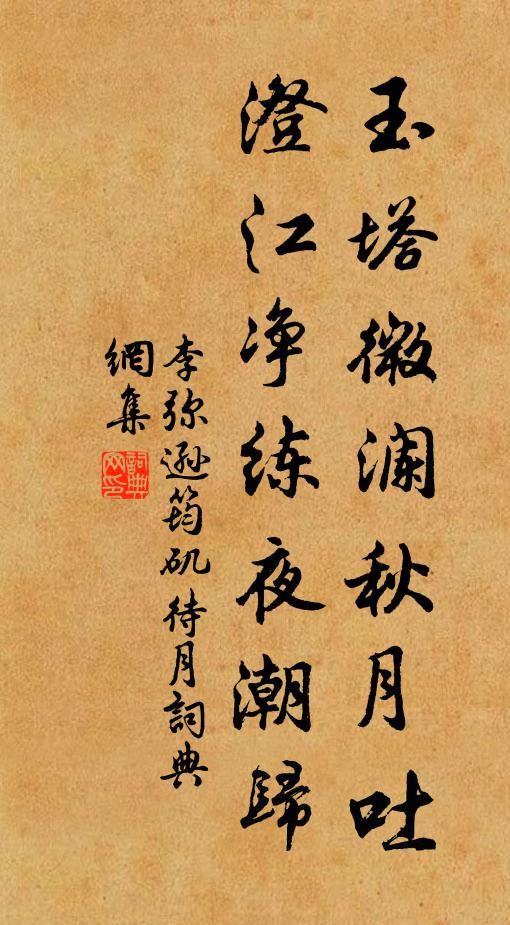 玉塔微澜秋月吐
澄江净练夜潮歸
李弥遜筠矶待月詞典
網集
詞典
网印